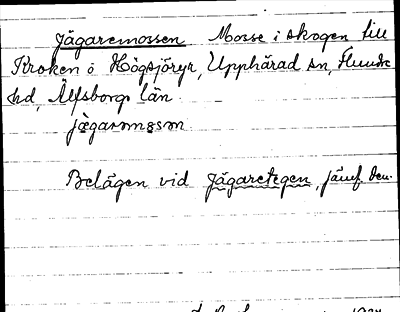 Jägaremossen Mosse i skogen till
Kroken ö Högsjöryr, Upphärad sn, Flundr.
hd, Älfsborgs län
jägarəmɷsən
Belägen vid Jägaretegen, jämf. den.